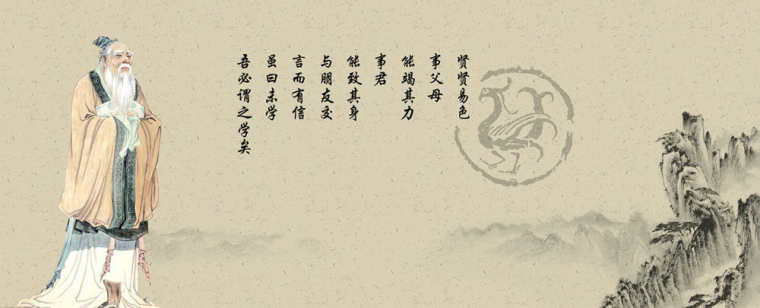 贤贤易色
事父母
能竭其力
事君
能致其身
与朋友交
言而有信
虽曰未学
吾必谓之学矣